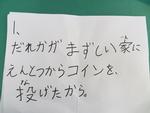 1、
だれかが まずしい家に
えんとつからコインを、
投げたから。